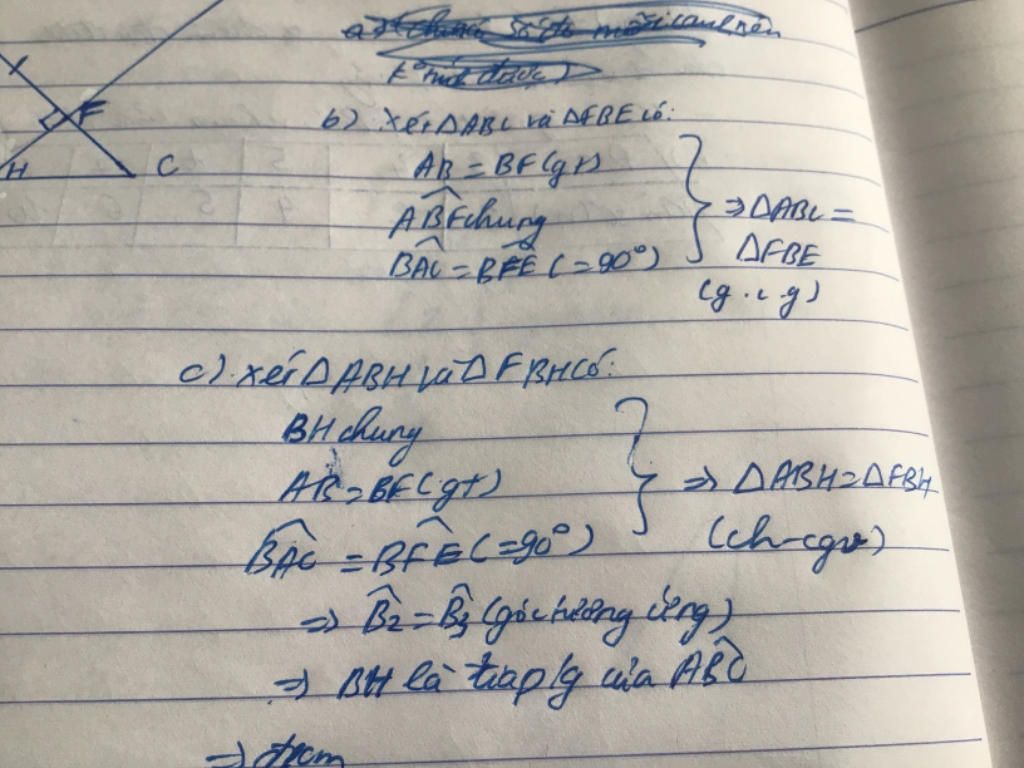 F
H
C
b) Xét ΔABC và ΔFBE có:
AB = BF (gt)
ABF chung
BAC = BFE (= 90°)
=> ΔABC =
ΔFBE
(g.c.g)
c). xét ΔABH và ΔFBH có:
BH chung
AB = BF (gt)
BAC = BFE (= 90°)
=> ΔABH = ΔFBH
(ch-cgv)
=> B2 = B3 (góc tương ứng)
=> BH là tia p/g của ABC
=> đpcm